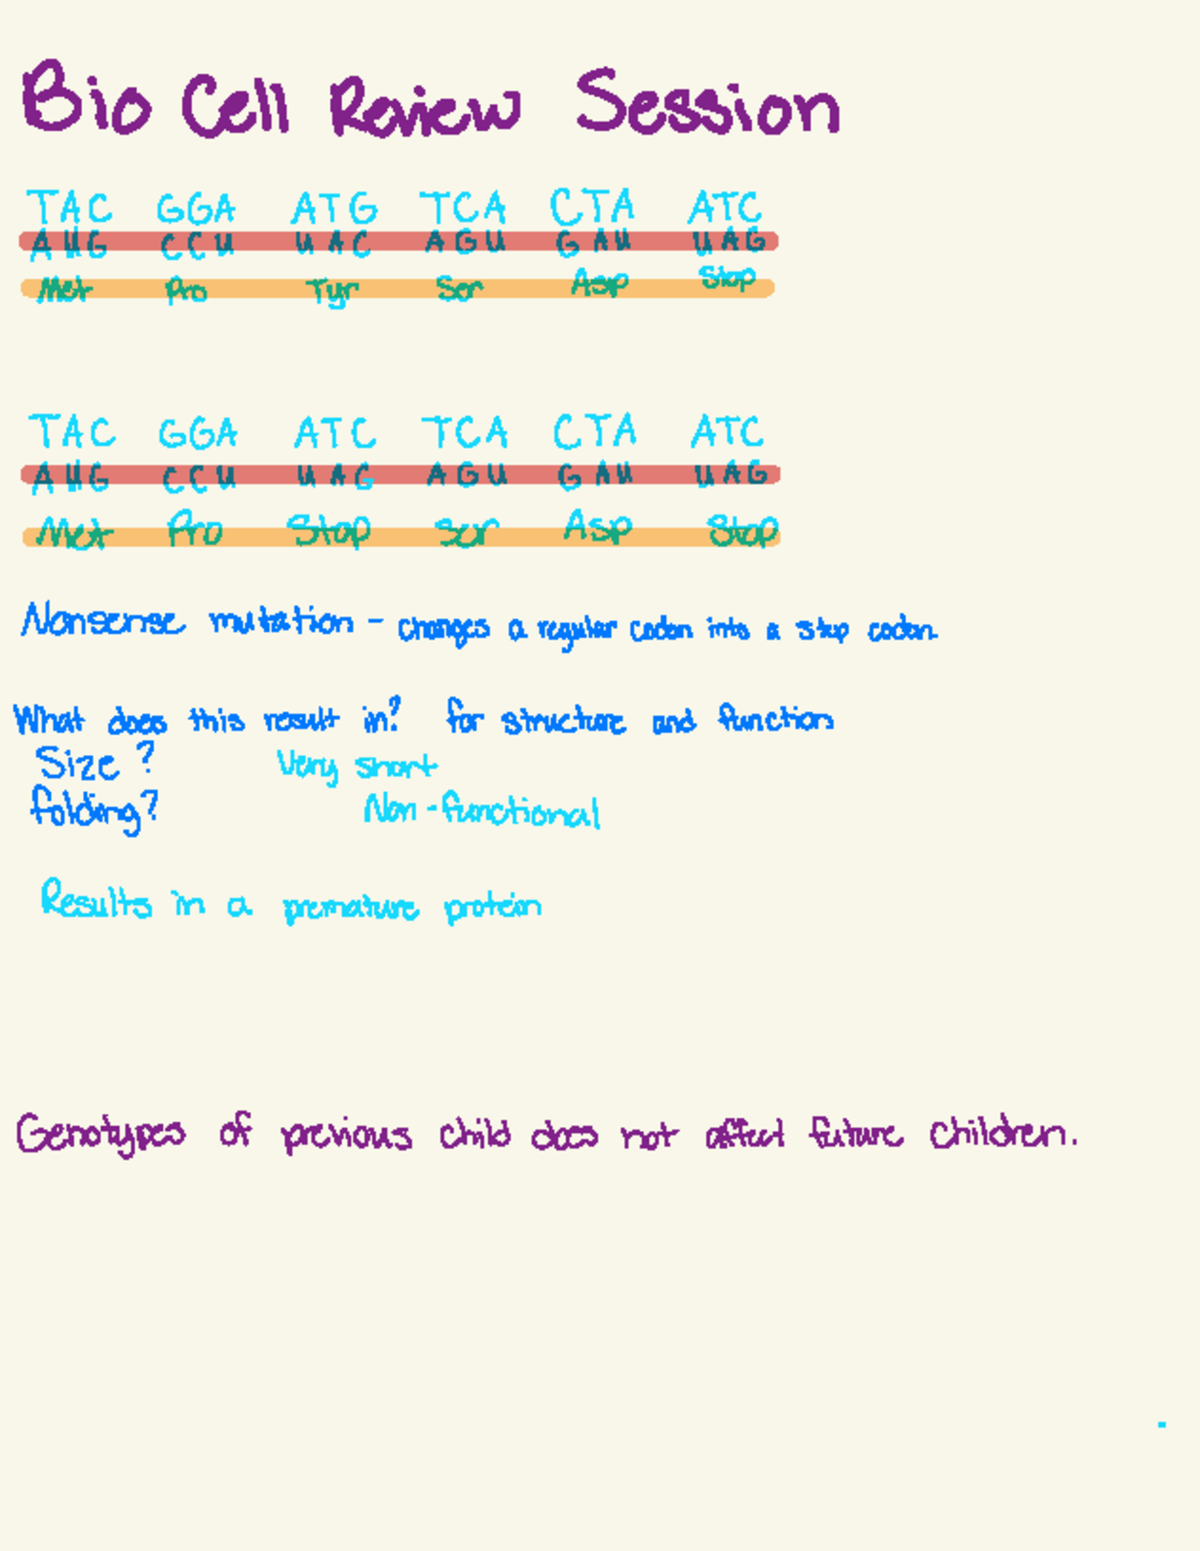 Bio Cell Review Session
TAC GGA ATG TCA CTA ATC
AUG CCU UAC AGU GAU UAG
Met Pro Tyr Ser Asp Stop
TAC GGA ATC TCA CTA ATC
AUG CCU UAG AGU GAU UAG
Met Pro Stop Ser Asp Stop
Nonsense mutation - changes a regular codon into a stop codon.
What does this result in? for structure and function
Size? Very short
folding? Non-functional
Results in a premature protein
Genotypes of previous child does not affect future children.